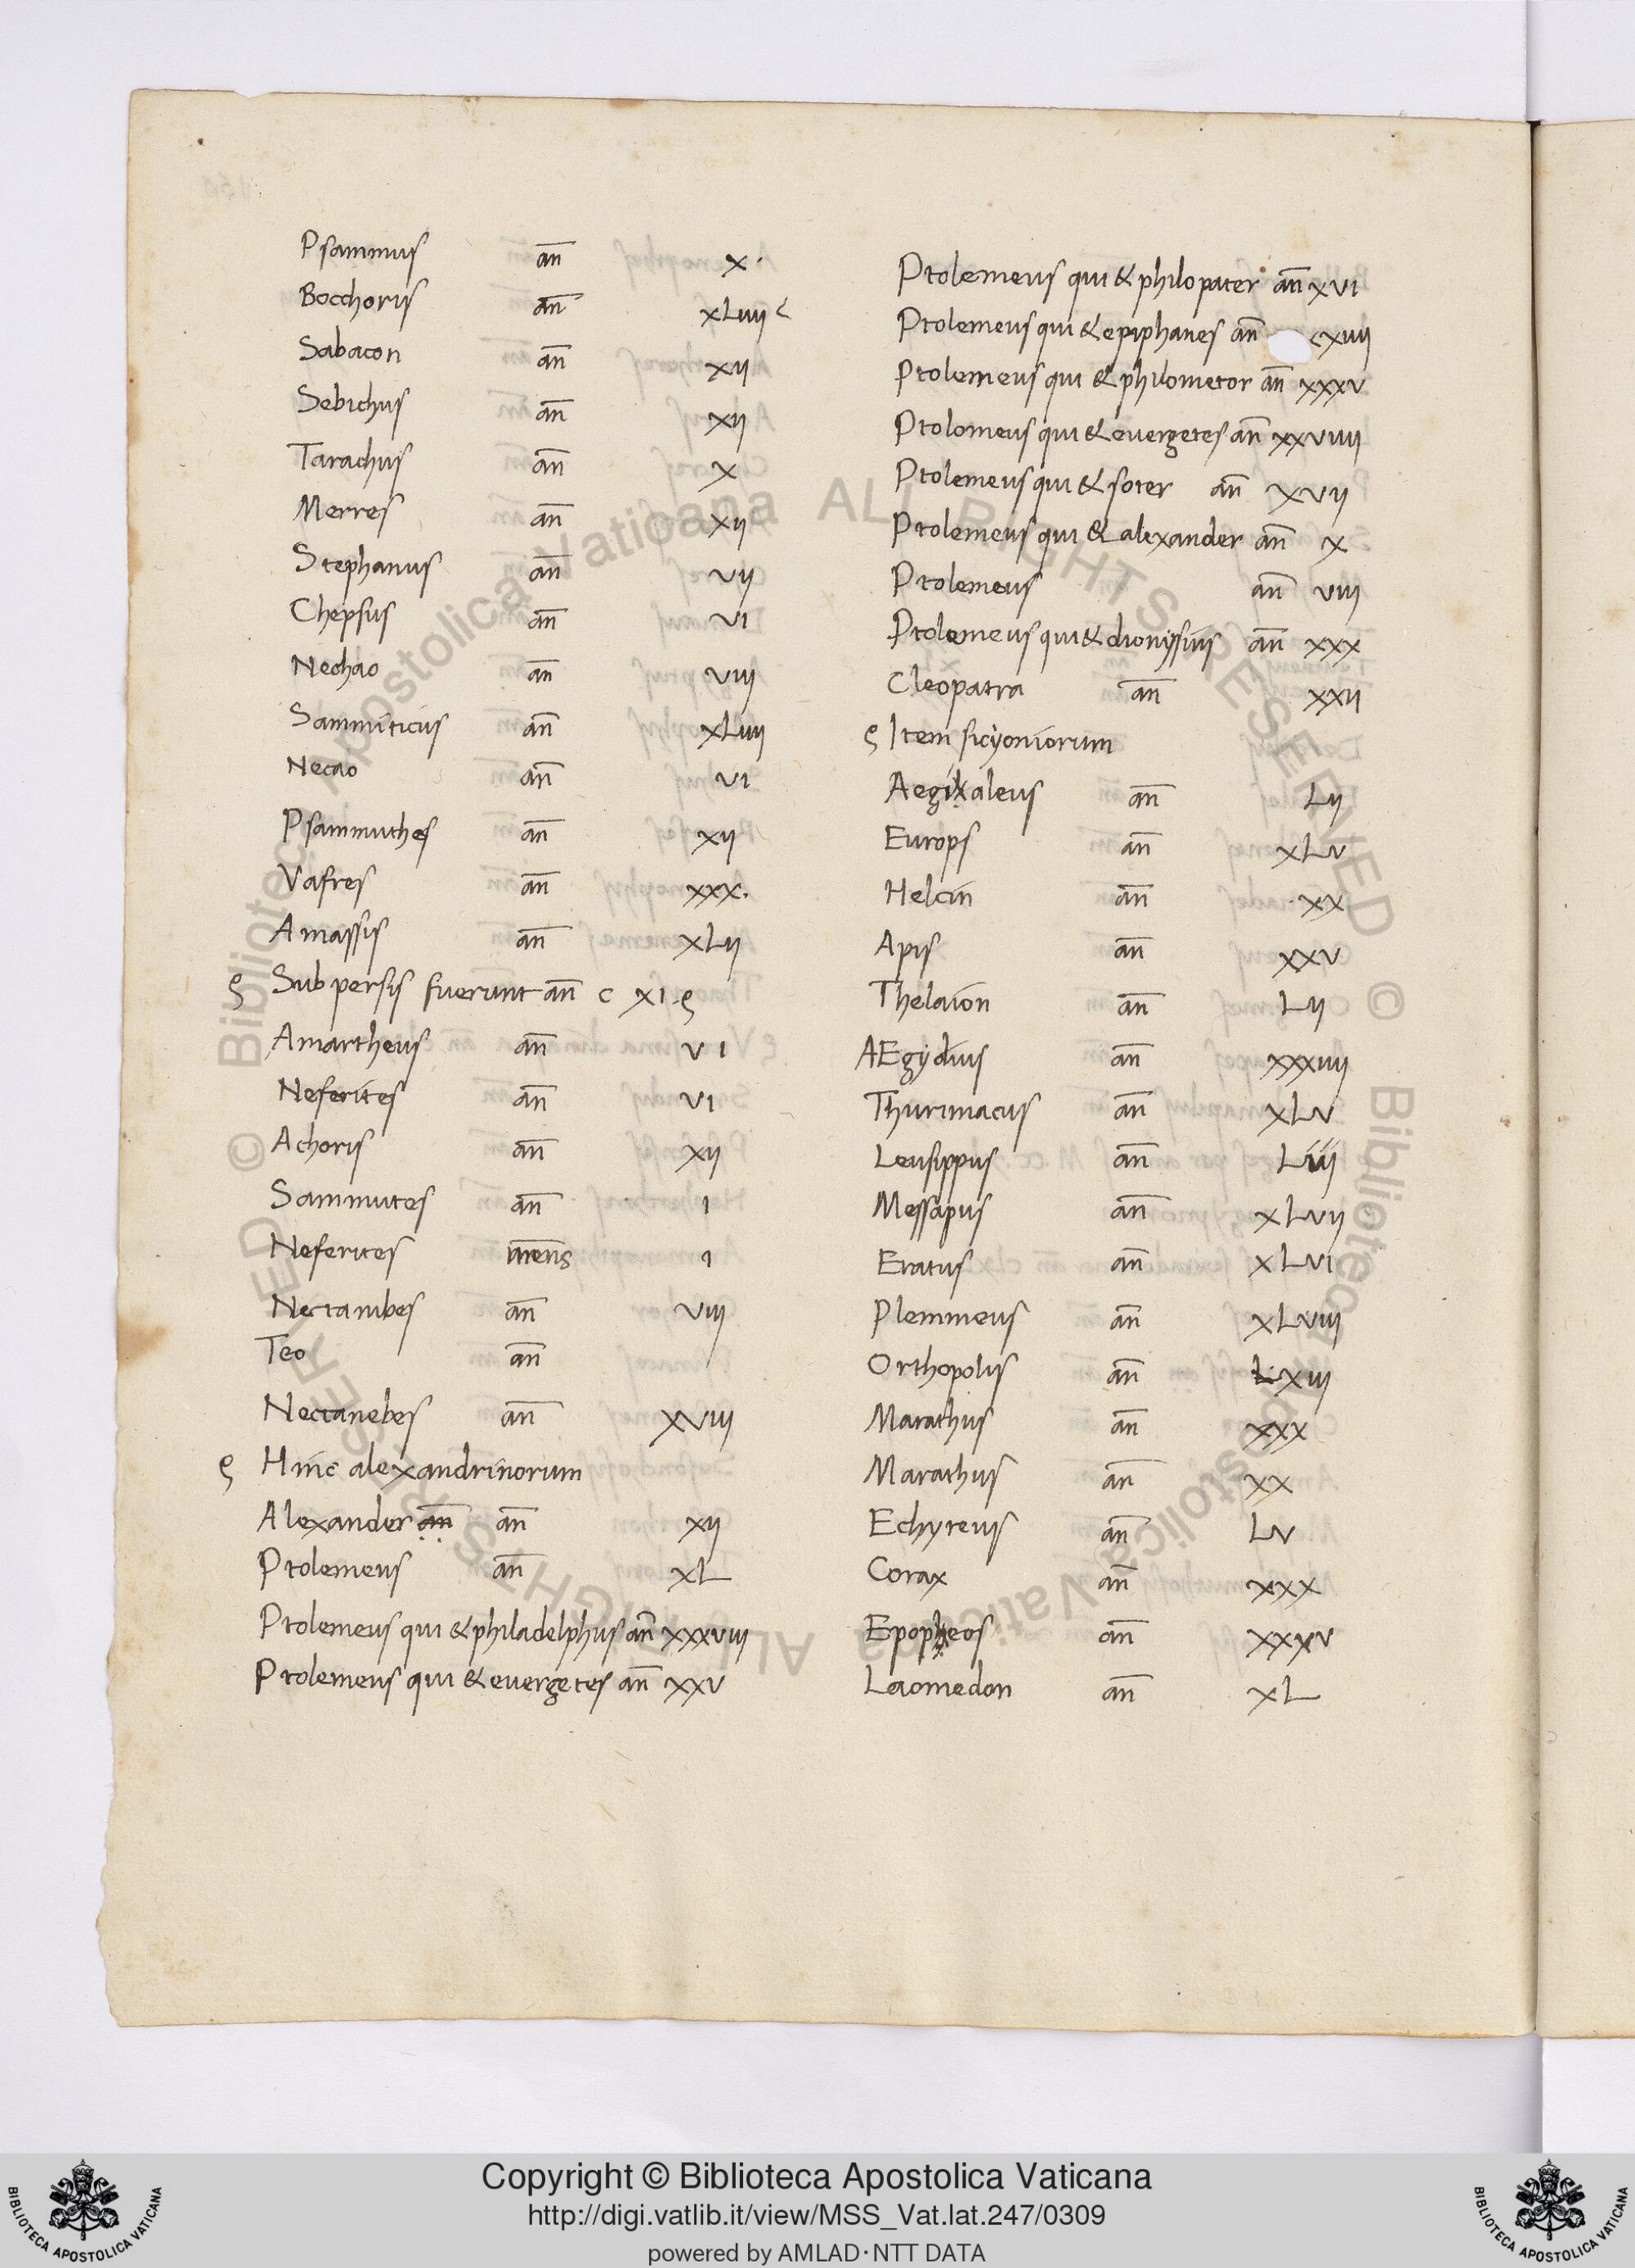 Psammus an̄ x.
Bocchoris an̄ xLiiii
Sabacon an̄ xii
Sebichus an̄ xii
Tarachus an̄ x
Merres an̄ xii
Stephanus an̄ vii
Chepsus an̄ vi
Nechao an̄ viii
Sammiticus an̄ xLiiii
Necao an̄ vi
Psammuthes an̄ xii
Vafres an̄ xxx.
Amassis an̄ xLii
Sub persis fuerunt an̄ c xi
Amartheus an̄ vi
Neferites an̄ vi
Achoris an̄ xii
Sammutes an̄ i
Neferites mens i
Nectambes an̄ viii
Teo an̄
Nectanebes an̄ xviii
Hinc alexandrinorum
Alexander an̄ an̄ xii
Ptolemeus an̄ xL
Ptolemeus qui & philadelphus an̄ xxxviii
Ptolemeus qui & evergetes an̄ xxv
Ptolemeus qui & philopater an̄ xvi
Ptolemeus qui & epiphanes an̄ xxiiii
Ptolemeus qui & philometor an̄ xxxv
Ptolomeus qui & evergetes an̄ xxviiii
Ptolemeus qui & soter an̄ xvii
Ptolemeus qui & alexander an̄ x
Ptolemeus an̄ viii
Ptolemeus qui & dionyssius an̄ xxx
Cleopatra an̄ xxii
Item sicyoniorum
Aegialeus an̄ Lii
Europs an̄ xLv
Helcin an̄ xx
Apis an̄ xxv
Thelaion an̄ Lii
AEgydius an̄ xxxiiii
Thurimacus an̄ xLv
Leusippus an̄ Liii
Messapus an̄ xLvii
Eratus an̄ xLvi
Plemmeus an̄ xLviii
Orthopolis an̄ Lxiii
Marathus an̄ xxx
Marathus an̄ xx
Echyreus an̄ Lv
Corax an̄ xxx
Epopeos an̄ xxxv
Laomedon an̄ xL
Copyright © Biblioteca Apostolica Vaticana
http://digi.vatlib.it/view/MSS_Vat.lat.247/0309
powered by AMLAD·NTT DATA
BIBLIOTECA APOSTOLICA VATICANA
BIBLIOTECA APOSTOLICA VATICANA
© Biblioteca Apostolica Vaticana ALL RIGHTS RESERVED
© Biblioteca Apostolica Vaticana ALL RIGHTS RESERVED